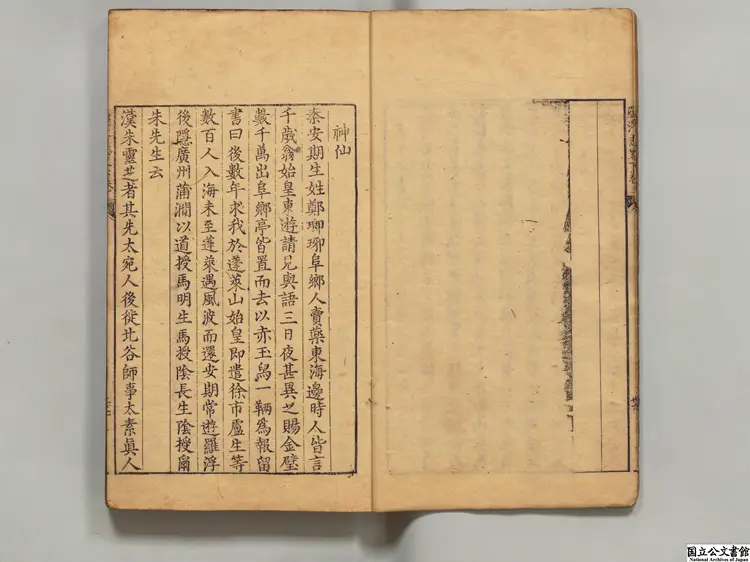 神仙
秦安期生姓鄭瑯琊阜鄉人賣藥東海邊時人皆言
千歲翁始皇東遊請見與語三日夜甚異之賜金璧
數千萬出阜鄉亭皆置而去以赤玉舄一輛為報留
書曰後數年求我於蓬萊山始皇即遣徐市盧生等
數百人入海未至蓬萊遇風波而還安期常遊羅浮
後隱廣州蒲澗以道授馬明生馬授陰長生陰授
朱先生云
漢朱靈芝者其先太宛人後徙北谷師事太素眞人
国立公文書館
National Archives of Japan